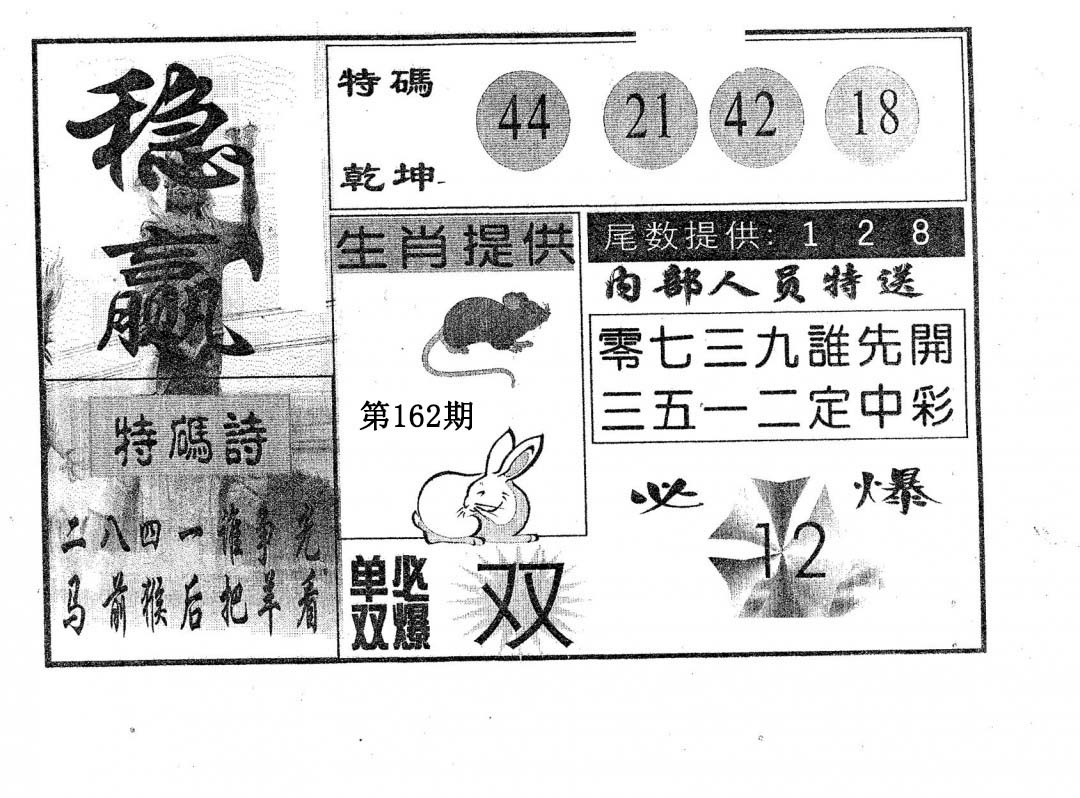 稳
赢
特碼
乾坤
44 21 42 18
生肖提供
第162期
尾数提供: 1 2 8
内部人员特送
零七三九誰先開
三五一二定中彩
特碼詩
二八四一谁争先
马前猴后把羊看
单双
必爆
双
必爆
12